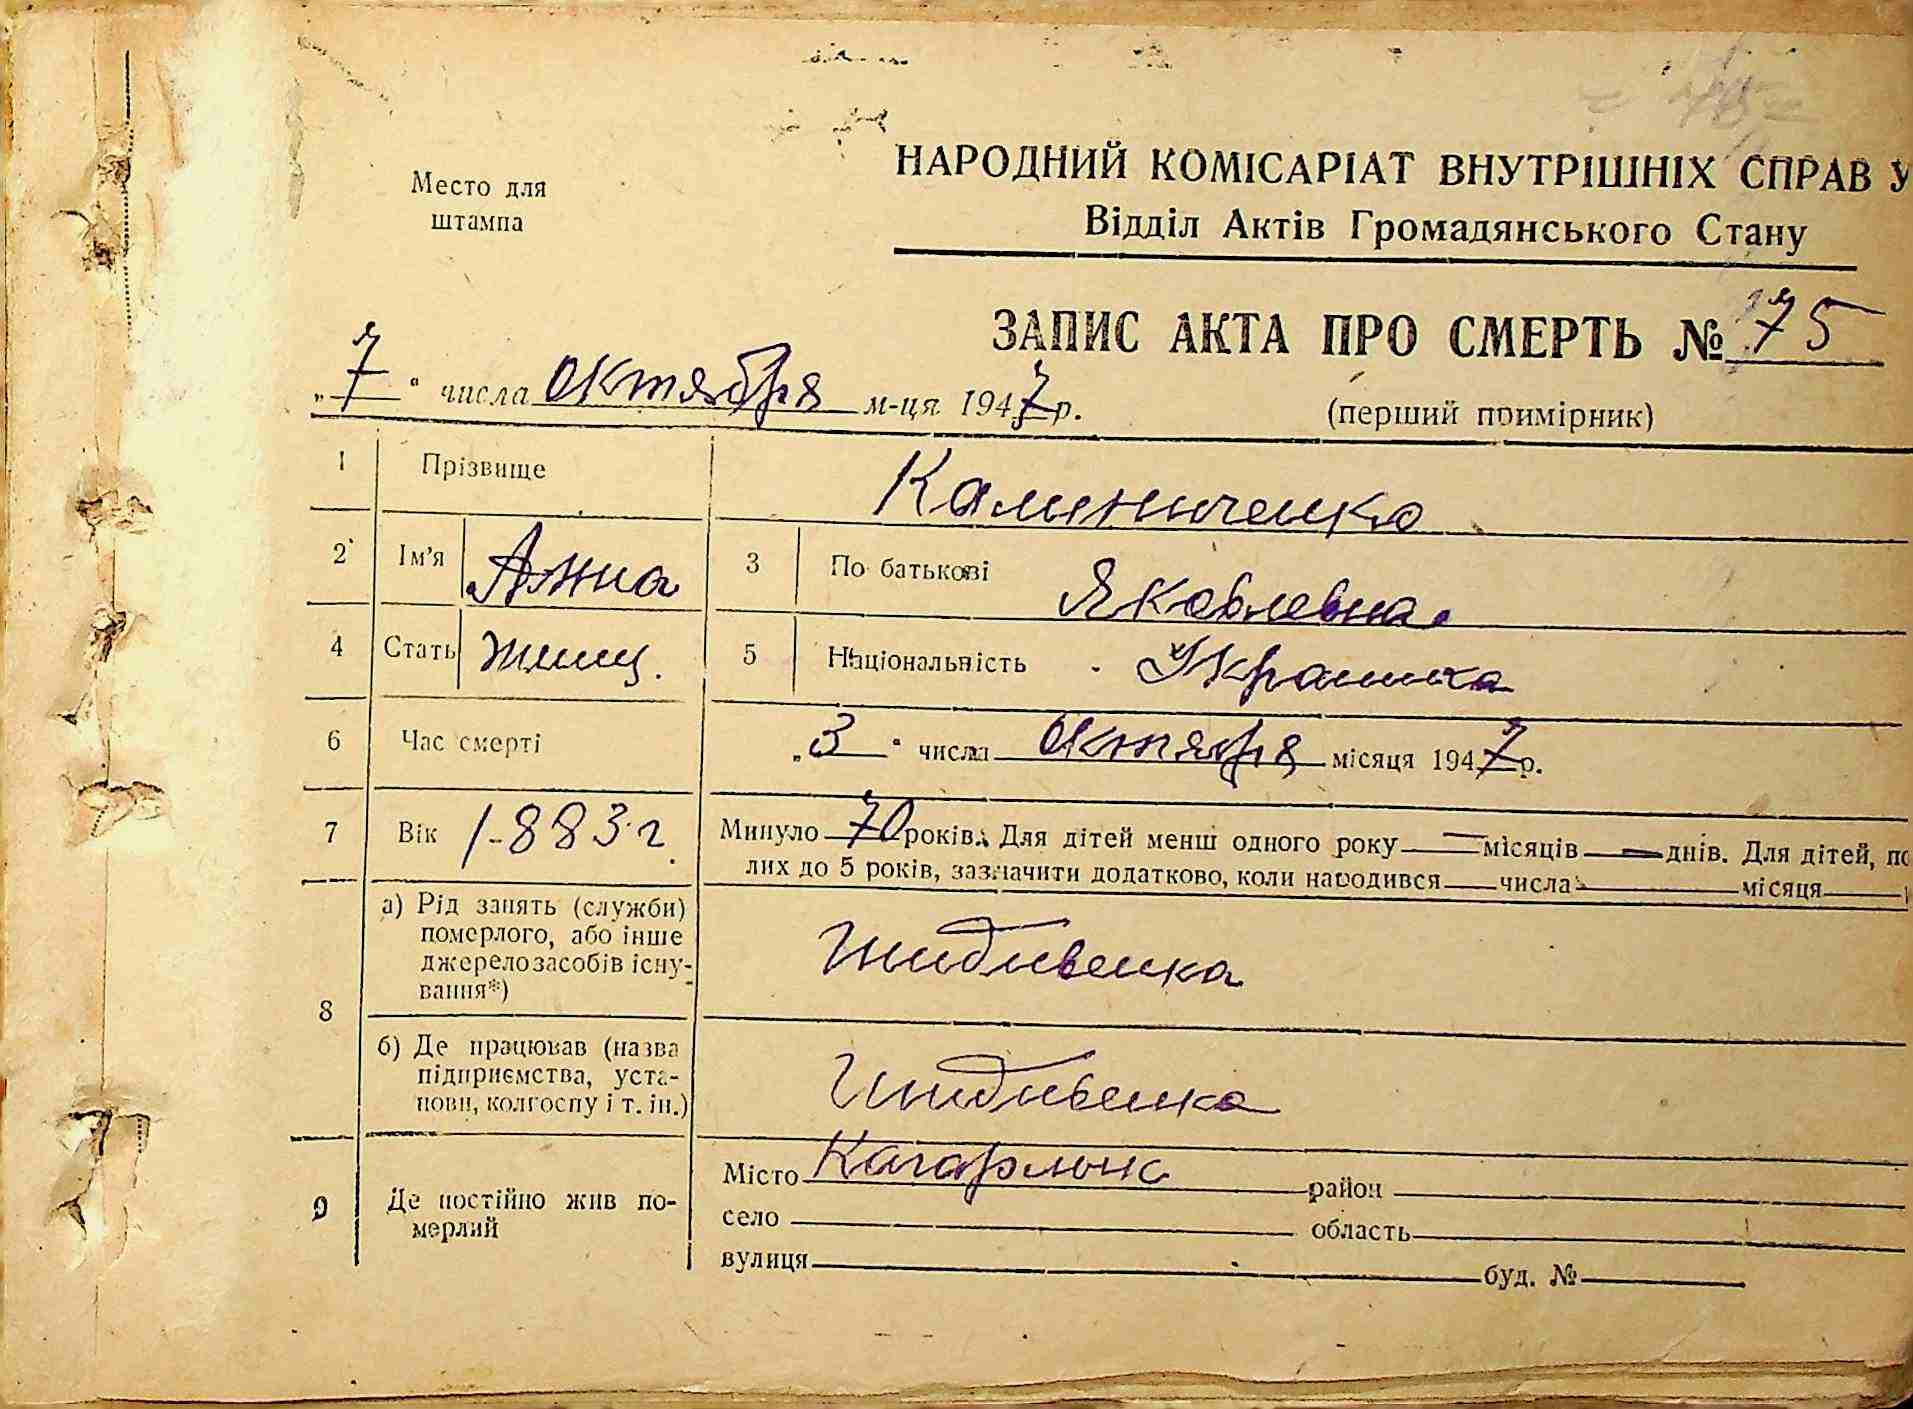 Место для
штампа
НАРОДНИЙ КОМІСАРІАТ ВНУТРІШНІХ СПРАВ У
Відділ Актів Громадянського Стану
ЗАПИС АКТА ПРО СМЕРТЬ № 75
„7“ числа октября м-ця 1947 р.
(перший примірник)
1 Прізвище Калиниченко
2 Ім'я Анна 3 По батькові Яковлевна
4 Стать женщ. 5 Національність Украинка
6 Час смерті „3“ числа октября місяця 1947 р.
7 Вік 1883 г. Минуло 70 років. Для дітей менш одного року — місяців — днів. Для дітей, по
лих до 5 років, зазначити додатково, коли народився числа місяця
8 а) Рід занять (служби)
померлого, або інше
джерело засобів існу-
вання*)
Иждивенка
б) Де працював (назва
підприємства, уста-
нови, колгоспу і т. ін.)
Иждивенка
9 Де постійно жив по-
мерлий
Місто Кагарлык район
село область
вулиця буд. №